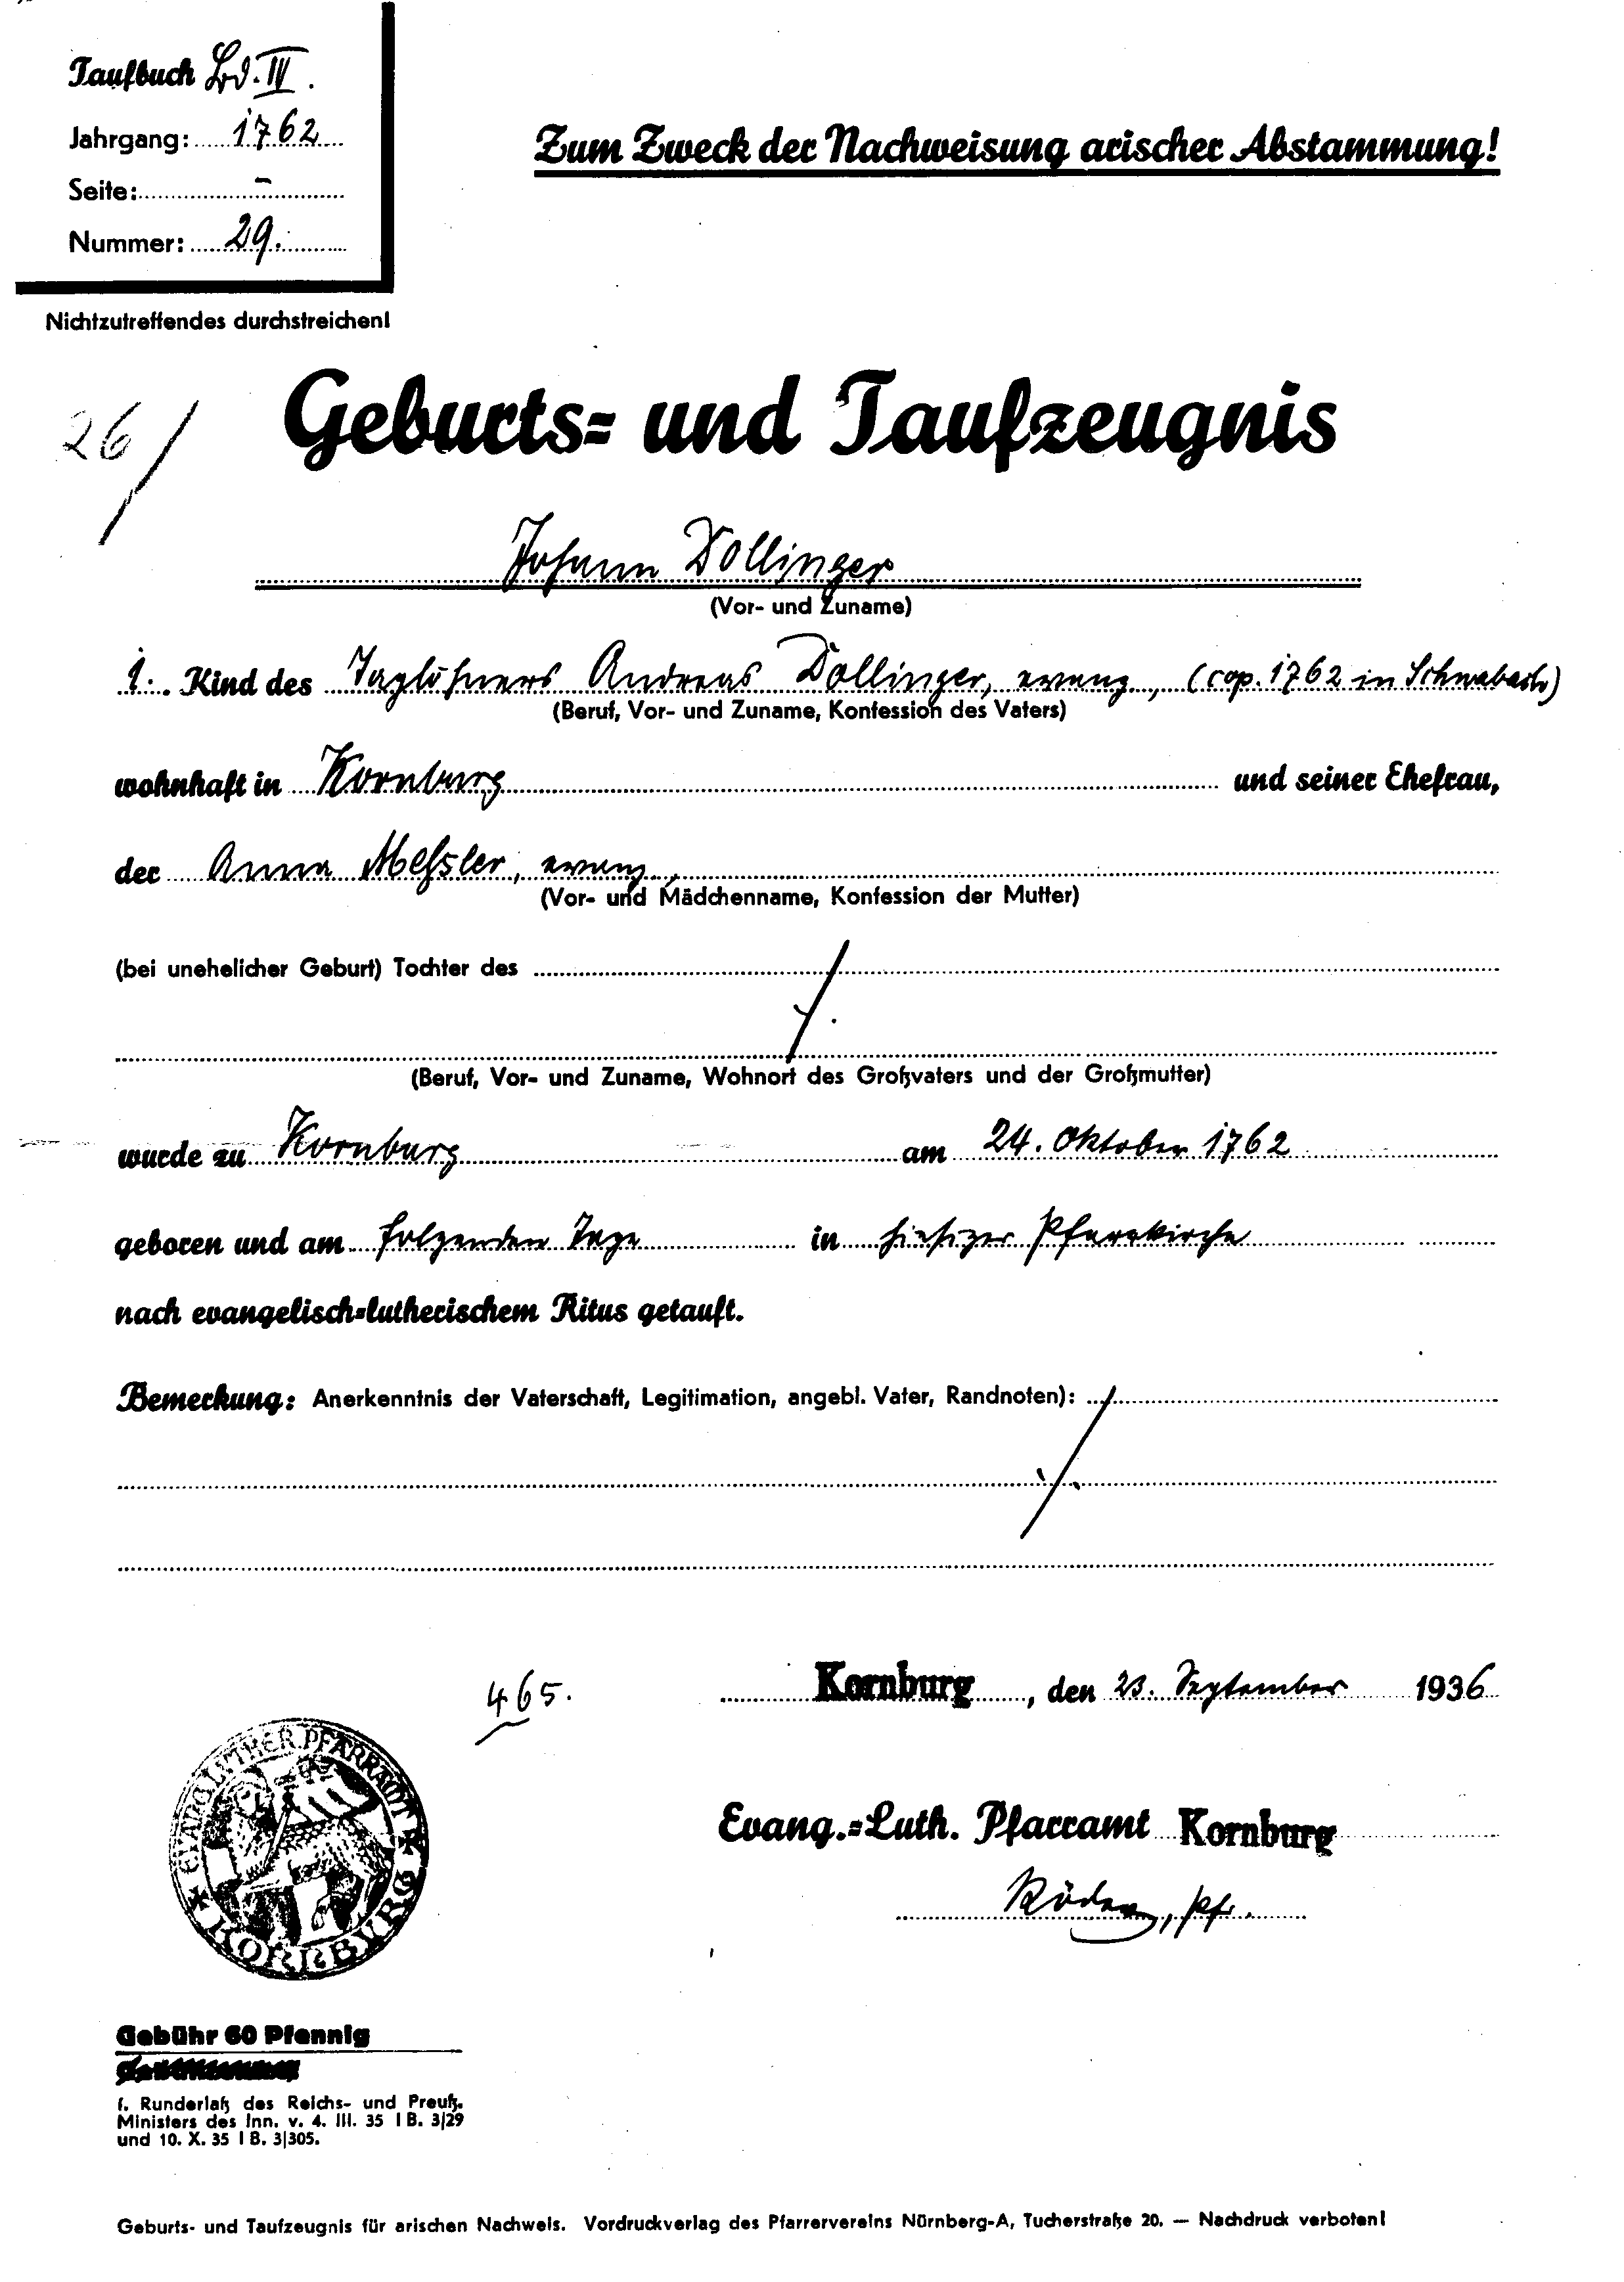 Taufbuch Bd. IV.
Jahrgang: 1762
Seite: –
Nummer: 29.
Zum Zweck der Nachweisung arischer Abstammung!
Nichtzutreffendes durchstreichen!
26/
Geburts= und Taufzeugnis
Johann Dollinger
(Vor- und Zuname)
1. Kind des Taglöhners Andreas Dollinger, evang., (cop. 1762 in Schwabach)
(Beruf, Vor- und Zuname, Konfession des Vaters)
wohnhaft in Kornburg und seiner Ehefrau,
der Anna Meßler, evang.,
(Vor- und Mädchenname, Konfession der Mutter)
(bei unehelicher Geburt) Tochter des
(Beruf, Vor- und Zuname, Wohnort des Großvaters und der Großmutter)
wurde zu Kornburg am 24. Oktober 1762
geboren und am folgenden Tage in hiesiger Pfarrkirche
nach evangelisch=lutherischem Ritus getauft.
Bemerkung: Anerkenntnis der Vaterschaft, Legitimation, angebl. Vater, Randnoten):
465.
Kornburg, den 23. September 1936
EVANG. LUTHER. PFARRAMT
KORNBVRG
Evang.=Luth. Pfarramt Kornburg
Pfr.
Gebühr 60 Pfennig
f. Runderlaß des Reichs- und Preuß.
Ministers des Inn. v. 4. III. 35 I B. 3/29
und 10. X. 35 I B. 3/305.
Geburts- und Taufzeugnis für arischen Nachweis. Vordruckverlag des Pfarrervereins Nürnberg-A, Tucherstraße 20. — Nachdruck verboten!